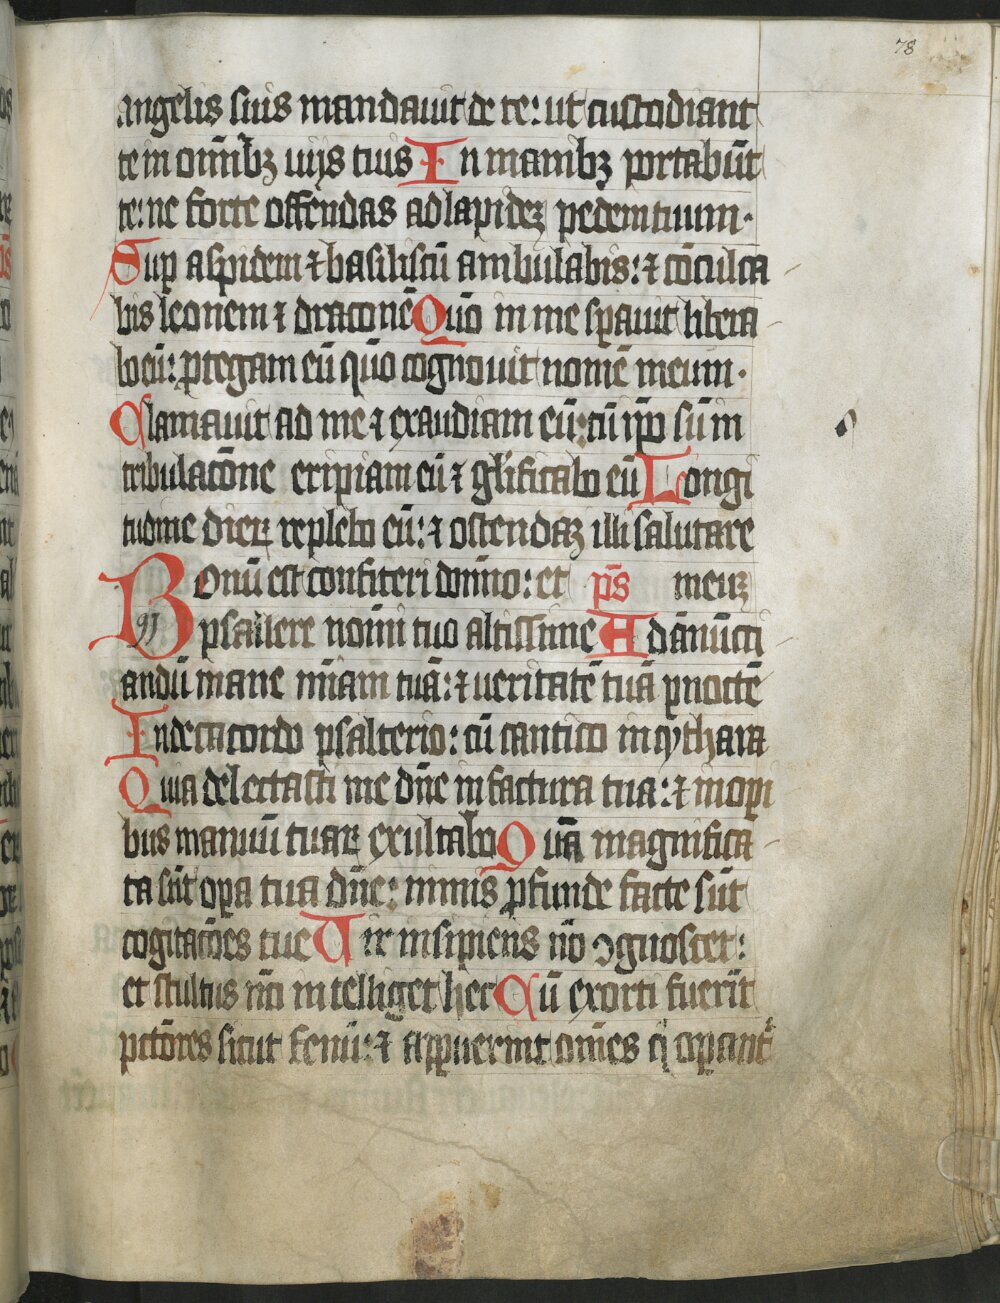 78
angelis suis mandauit de te: ut custodiant
te in om̄ibꝫ uijs tuis In manibꝫ portabūt
te: ne forte offendas ad lapideꝫ pedem tuum·
Suꝑ aspidem ⁊ basiliscū ambulabis: ⁊ cōculca
bis leonem ⁊ draconē Quō in me sꝑauit libera
bo eū: ꝓtegam eū quō cognouit nomē meum·
Clamauit ad me ⁊ exaudiam eū: cū ip̄o sū in
tribulatōne eripiam eū ⁊ gl̄ificabo eū Longi
tudine dieꝝ replebo eū: ⁊ ostendaꝫ illi salutare
Bonū est confiteri domino: et p̄s meuꝫ
91 psallere nomī tuo altissime Ad anūcti
andū mane mīam tuā: ⁊ ueritatē tuā ꝑ noctē
In decacordo psalterio: cū cantico in cythara
Quia delectasti me dn̄e in factura tua: ⁊ in oꝑi
bus manuū tuaꝝ exultabo Quā magnifica
ta sūt oꝑa tua dn̄e: nimis ꝓfunde facte sūt
cogitatōes tue Uir insipiens nō ꝯgnoscet:
et stultus nō intelliget hec Cū exorti fuerīt
pctōres sicut fenū: ⁊ apparuerint omēs q̄ oꝑant᷑